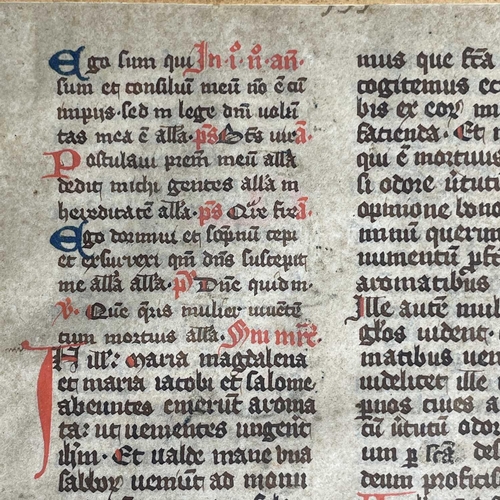 Ego sum qui In i. n. an.
sum et consiliū meū nō ē cū
impiis · sed in lege dn̄i volū
tas mea ē alła · ps̄ Bt̄s vir · a.
Postulavi prem̄ meū alła
dedit michi gentes alła in
hereditatē alła · ps̄ Qͣre fre · a.
Ego dormivi et sopnū cepi
et resurrexi qm̄ dn̄s suscepit
me alła alła · ps̄ Dn̄e quid m ·
v. Quē qͥris mulier viventē
cum mortuis alła ·
In ill: Maria magdalena
et maria iacobi et salome
abeuntes emerūt aroma
ta: ut venientes ungent
ihm̄ · Et valde mane una
sabbō veniūt ad monu
mus que fc̄a
cogitemus et
bis ex eor
facienda · Et
qui ē mortuus
si odore v̄tuti
opinione bono
minū querim
numentū
aromatibꝰ
Ille autē mul
glos vident ·
matibus ven
videlicet ille
pios cives a
cū v̄tutū odor
um ꝑ sc̄a de
deum profici